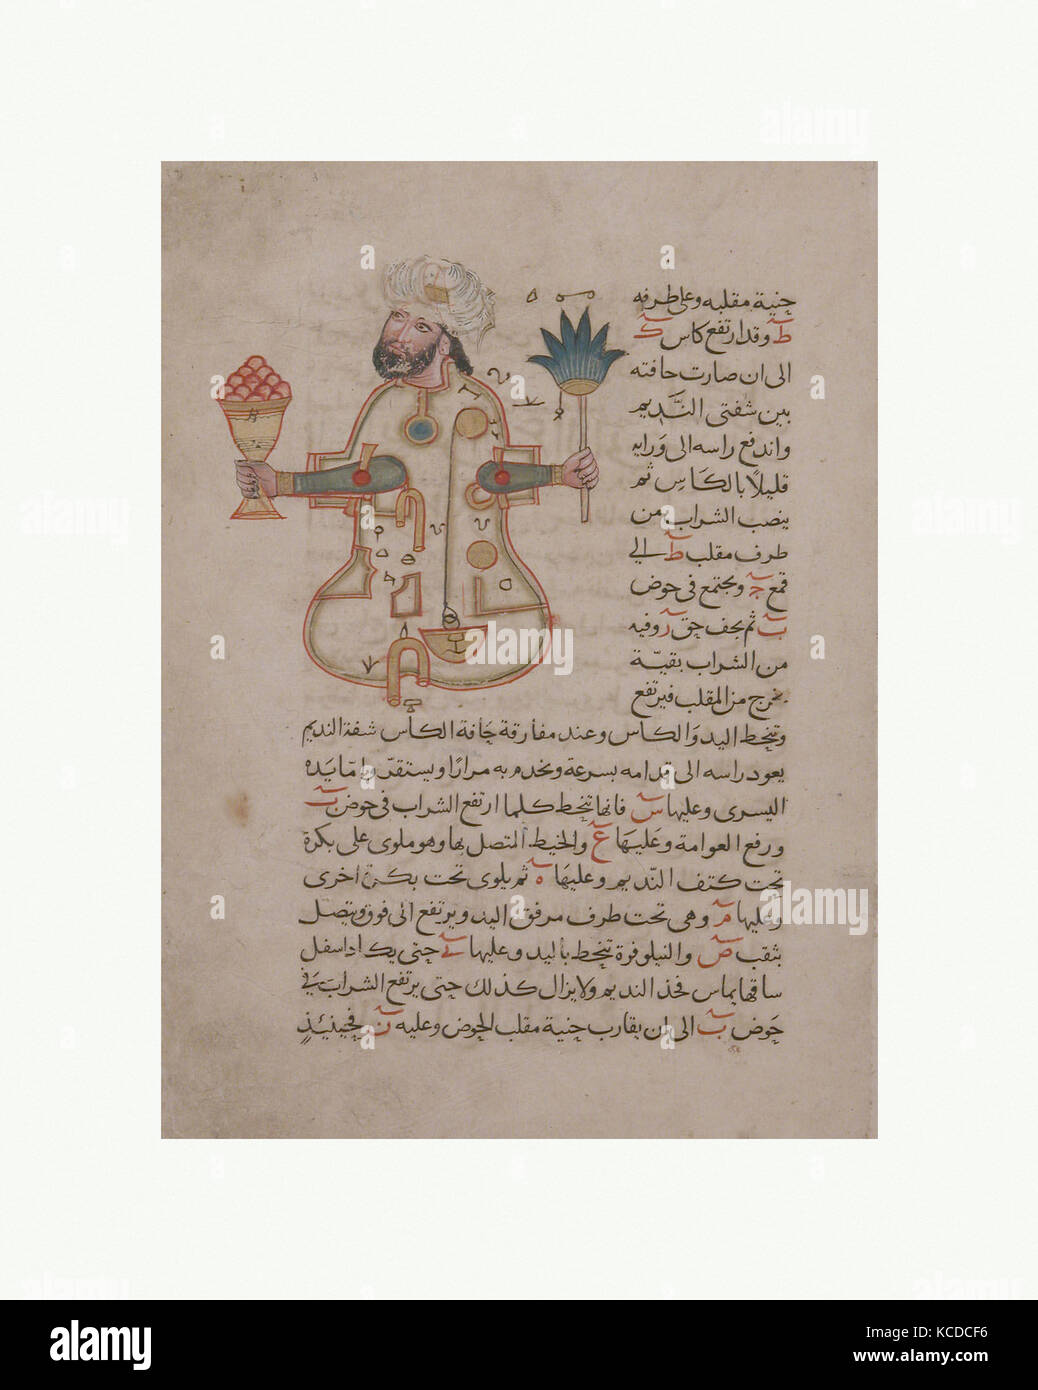 جنبة مقلبه وعلى طرفه
ط وقد ارتفع كاس ك
الى ان صارت حافته
بين شفتى النَّديم
واندفع راسه الى ورايه
قليلًا بالكَاسِ ثم
ينصب الشراب من
طرف مقلب ط الى
قمع ج ويجتمع فى حوض
ب ثم يجف حق ر وفيه
من الشراب بقيّة
يخرج من المقلب فيرتفع
وتنحط اليد وَالكاس وعند مفارقة حَافة الكأس شفة النديم
يعود راسه الى قدامه بسرعة ويخدم به مرارًا ويستقرّ وامّا يَده
اليسرى وعليها س فانها تنحط كلما ارتفع الشراب فى حوض ب
ورفع العوامة وعَليهَا ع والخيط المتصل بها وهو ملوى على بكرة
تحت كتف النّديم وعليهَا ه ثم يلوى تحت بكرة اخرى
وعليها م وهى تحت طرف مرفق اليد ويرتفع الى فوق ويتصل
بثقب ص والنيلوفرة تنحط باليد وعليها ف حتى يكاد اسفل
ساقها يماس فخذ النديم ولا يزال كذلك حتى يرتفع الشراب فى
حَوض ب الى ان يقارب جنبة مقلب الحَوض وعليه ن فحينئذٍ
alamy
Image ID: KCDCF6
www.alamy.com